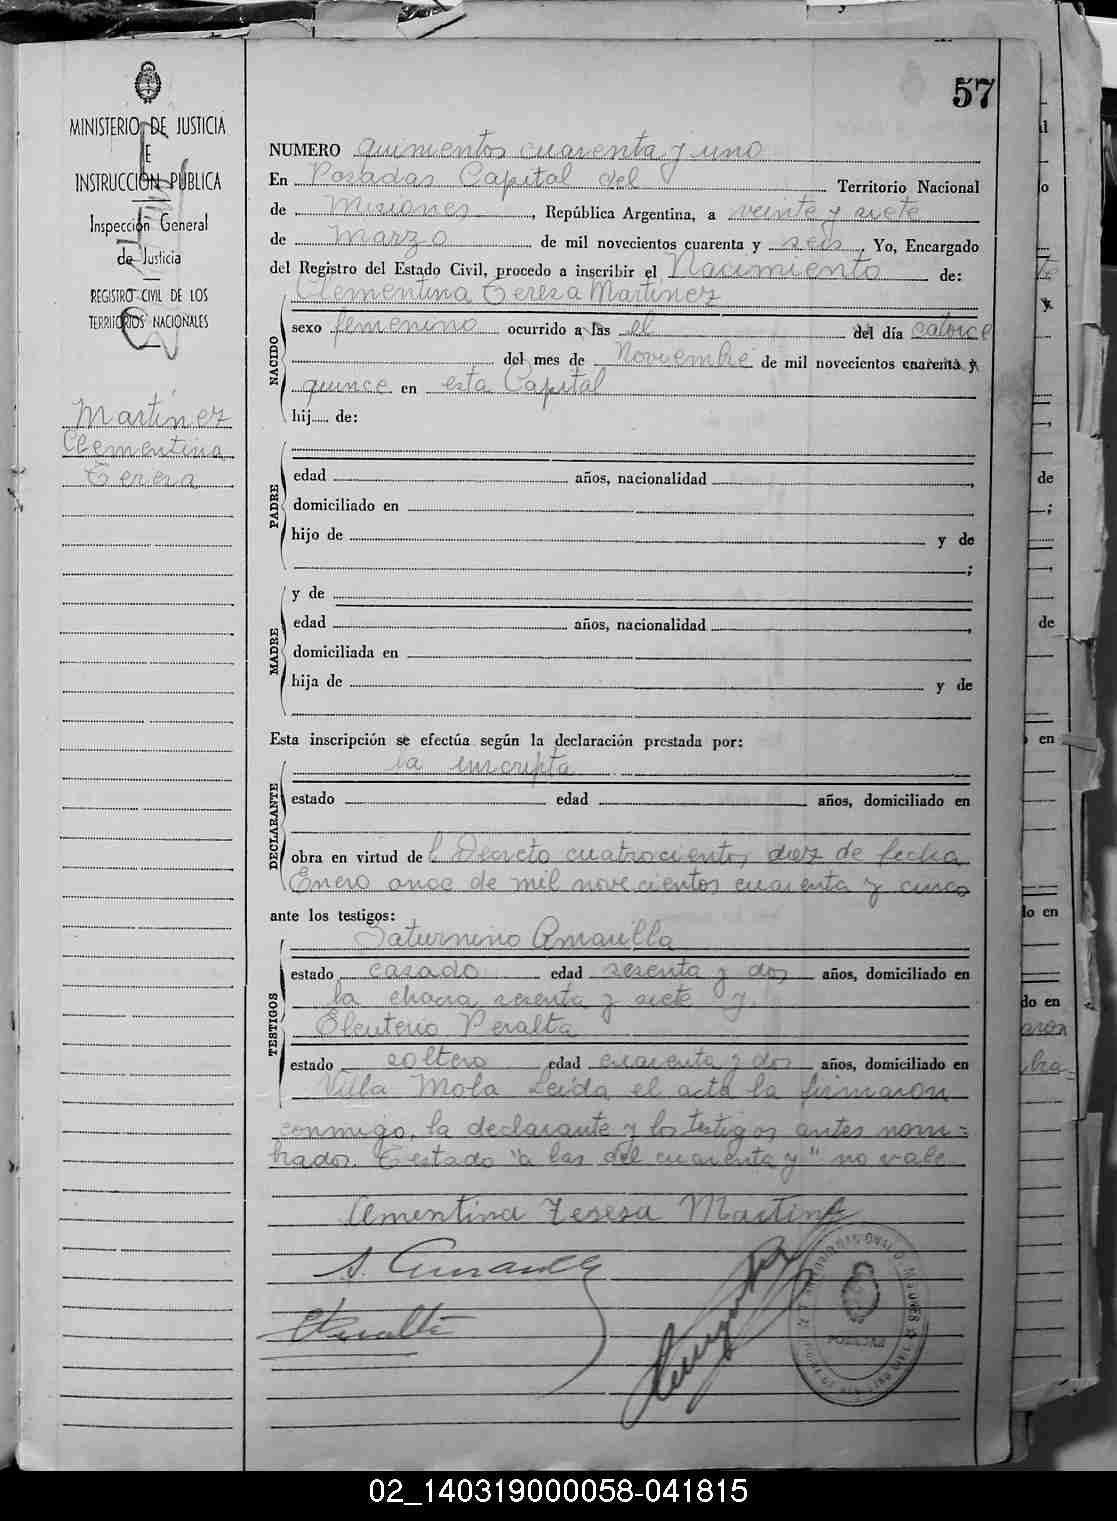 57
MINISTERIO DE JUSTICIA
E
INSTRUCCIÓN PÚBLICA
Inspección General
de Justicia
REGISTRO CIVIL DE LOS
TERRITORIOS NACIONALES
Martinez
Clementina
Teresa
NUMERO quinientos cuarenta y uno
En Posadas Capital del Territorio Nacional
de Misiones, República Argentina, a veinte y siete
de Marzo de mil novecientos cuarenta y seis. Yo, Encargado
del Registro del Estado Civil, procedo a inscribir el Nacimiento de:
Clementina Teresa Martinez
NACIDO
sexo femenino ocurrido a las el del día catorce
del mes de Noviembre de mil novecientos cuarenta y
quince en esta Capital
hij de:
PADRE
edad años, nacionalidad ,
domiciliado en
hijo de y de
;
MADRE
y de
edad años, nacionalidad ,
domiciliada en
hija de y de
Esta inscripción se efectúa según la declaración prestada por:
DECLARANTE
la inscripta
estado edad años, domiciliado en
obra en virtud del Decreto cuatrocientos diez de fecha
Enero once de mil novecientos cuarenta y cinco
ante los testigos:
TESTIGOS
Saturnino Amarilla
estado casado edad sesenta y dos años, domiciliado en
la chacra sesenta y siete y
Eleuterio Peralta
estado soltero edad cuarenta y dos años, domiciliado en
Villa Mola Leida el acta la firmaron
conmigo, la declarante y los testigos antes nom=
brados. Testado "a las del cuarenta y" no vale
Clementina Teresa Martinez
S. Amarilla
E Peralta
02_140319000058-041815